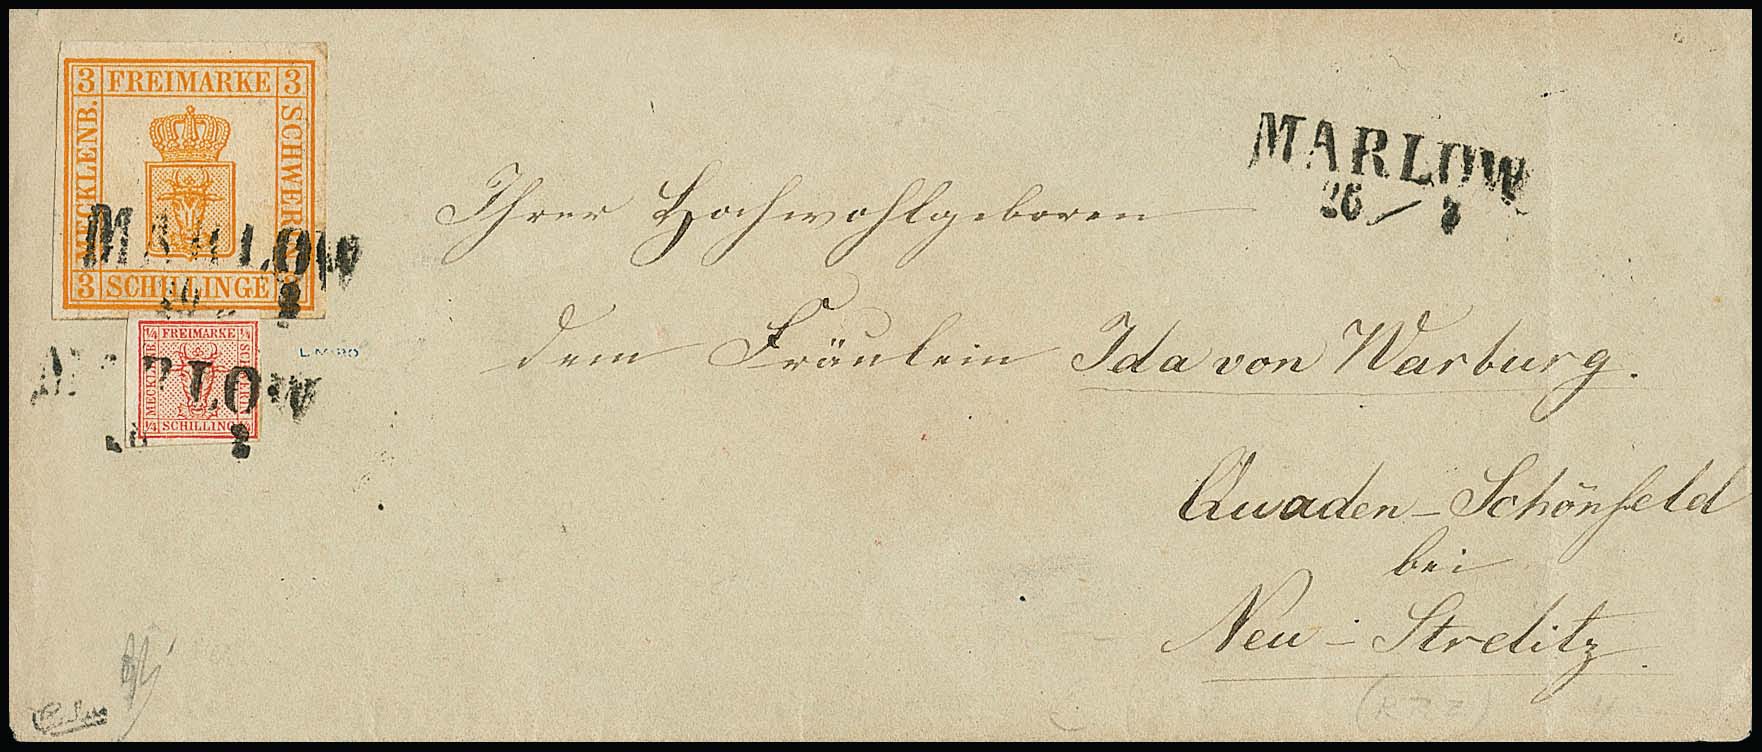 3 FREIMARKE 3
MECKLENB.
SCHWERIN
3 SCHILLINGE 3
MARLOW
1/4 FREIMARKE 1/4
MECKLENB.
SCHWERIN
1/4 SCHILLING 1/4
MARLOW
MARLOW
26 / 2
Ihrer Hochwohlgeboren
dem Fräulein Ida von Warburg.
Quaden-Schönfeld
bei
Neu-Strelitz.